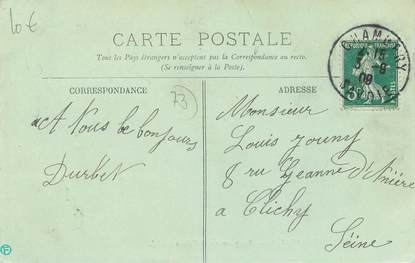 10 €
CARTE POSTALE
Tous les Pays étrangers n'acceptent pas la Correspondance au recto.
(Se renseigner à la Poste).
CORRESPONDANCE
73
ADRESSE
A Vous le bonjours
Durbet
Monsieur
Louis Jouny
8 rue Jeanne d'Asnière
a Clichy
Seine
CHAMBERY
3 - 8
09
SAVOIE
REPUBLIQUE FRANÇAISE
5